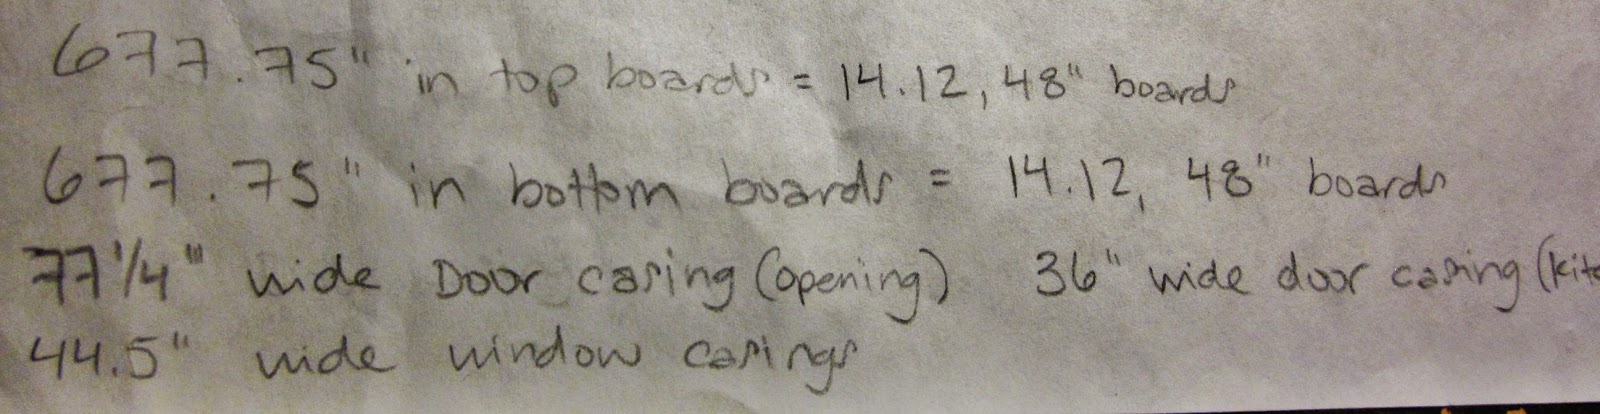 677.75" in top boards = 14.12, 48" boards
677.75" in bottom boards = 14.12, 48" boards
77 1/4" wide Door casing (opening) 36" wide door casing (kitc
44.5" wide window casings